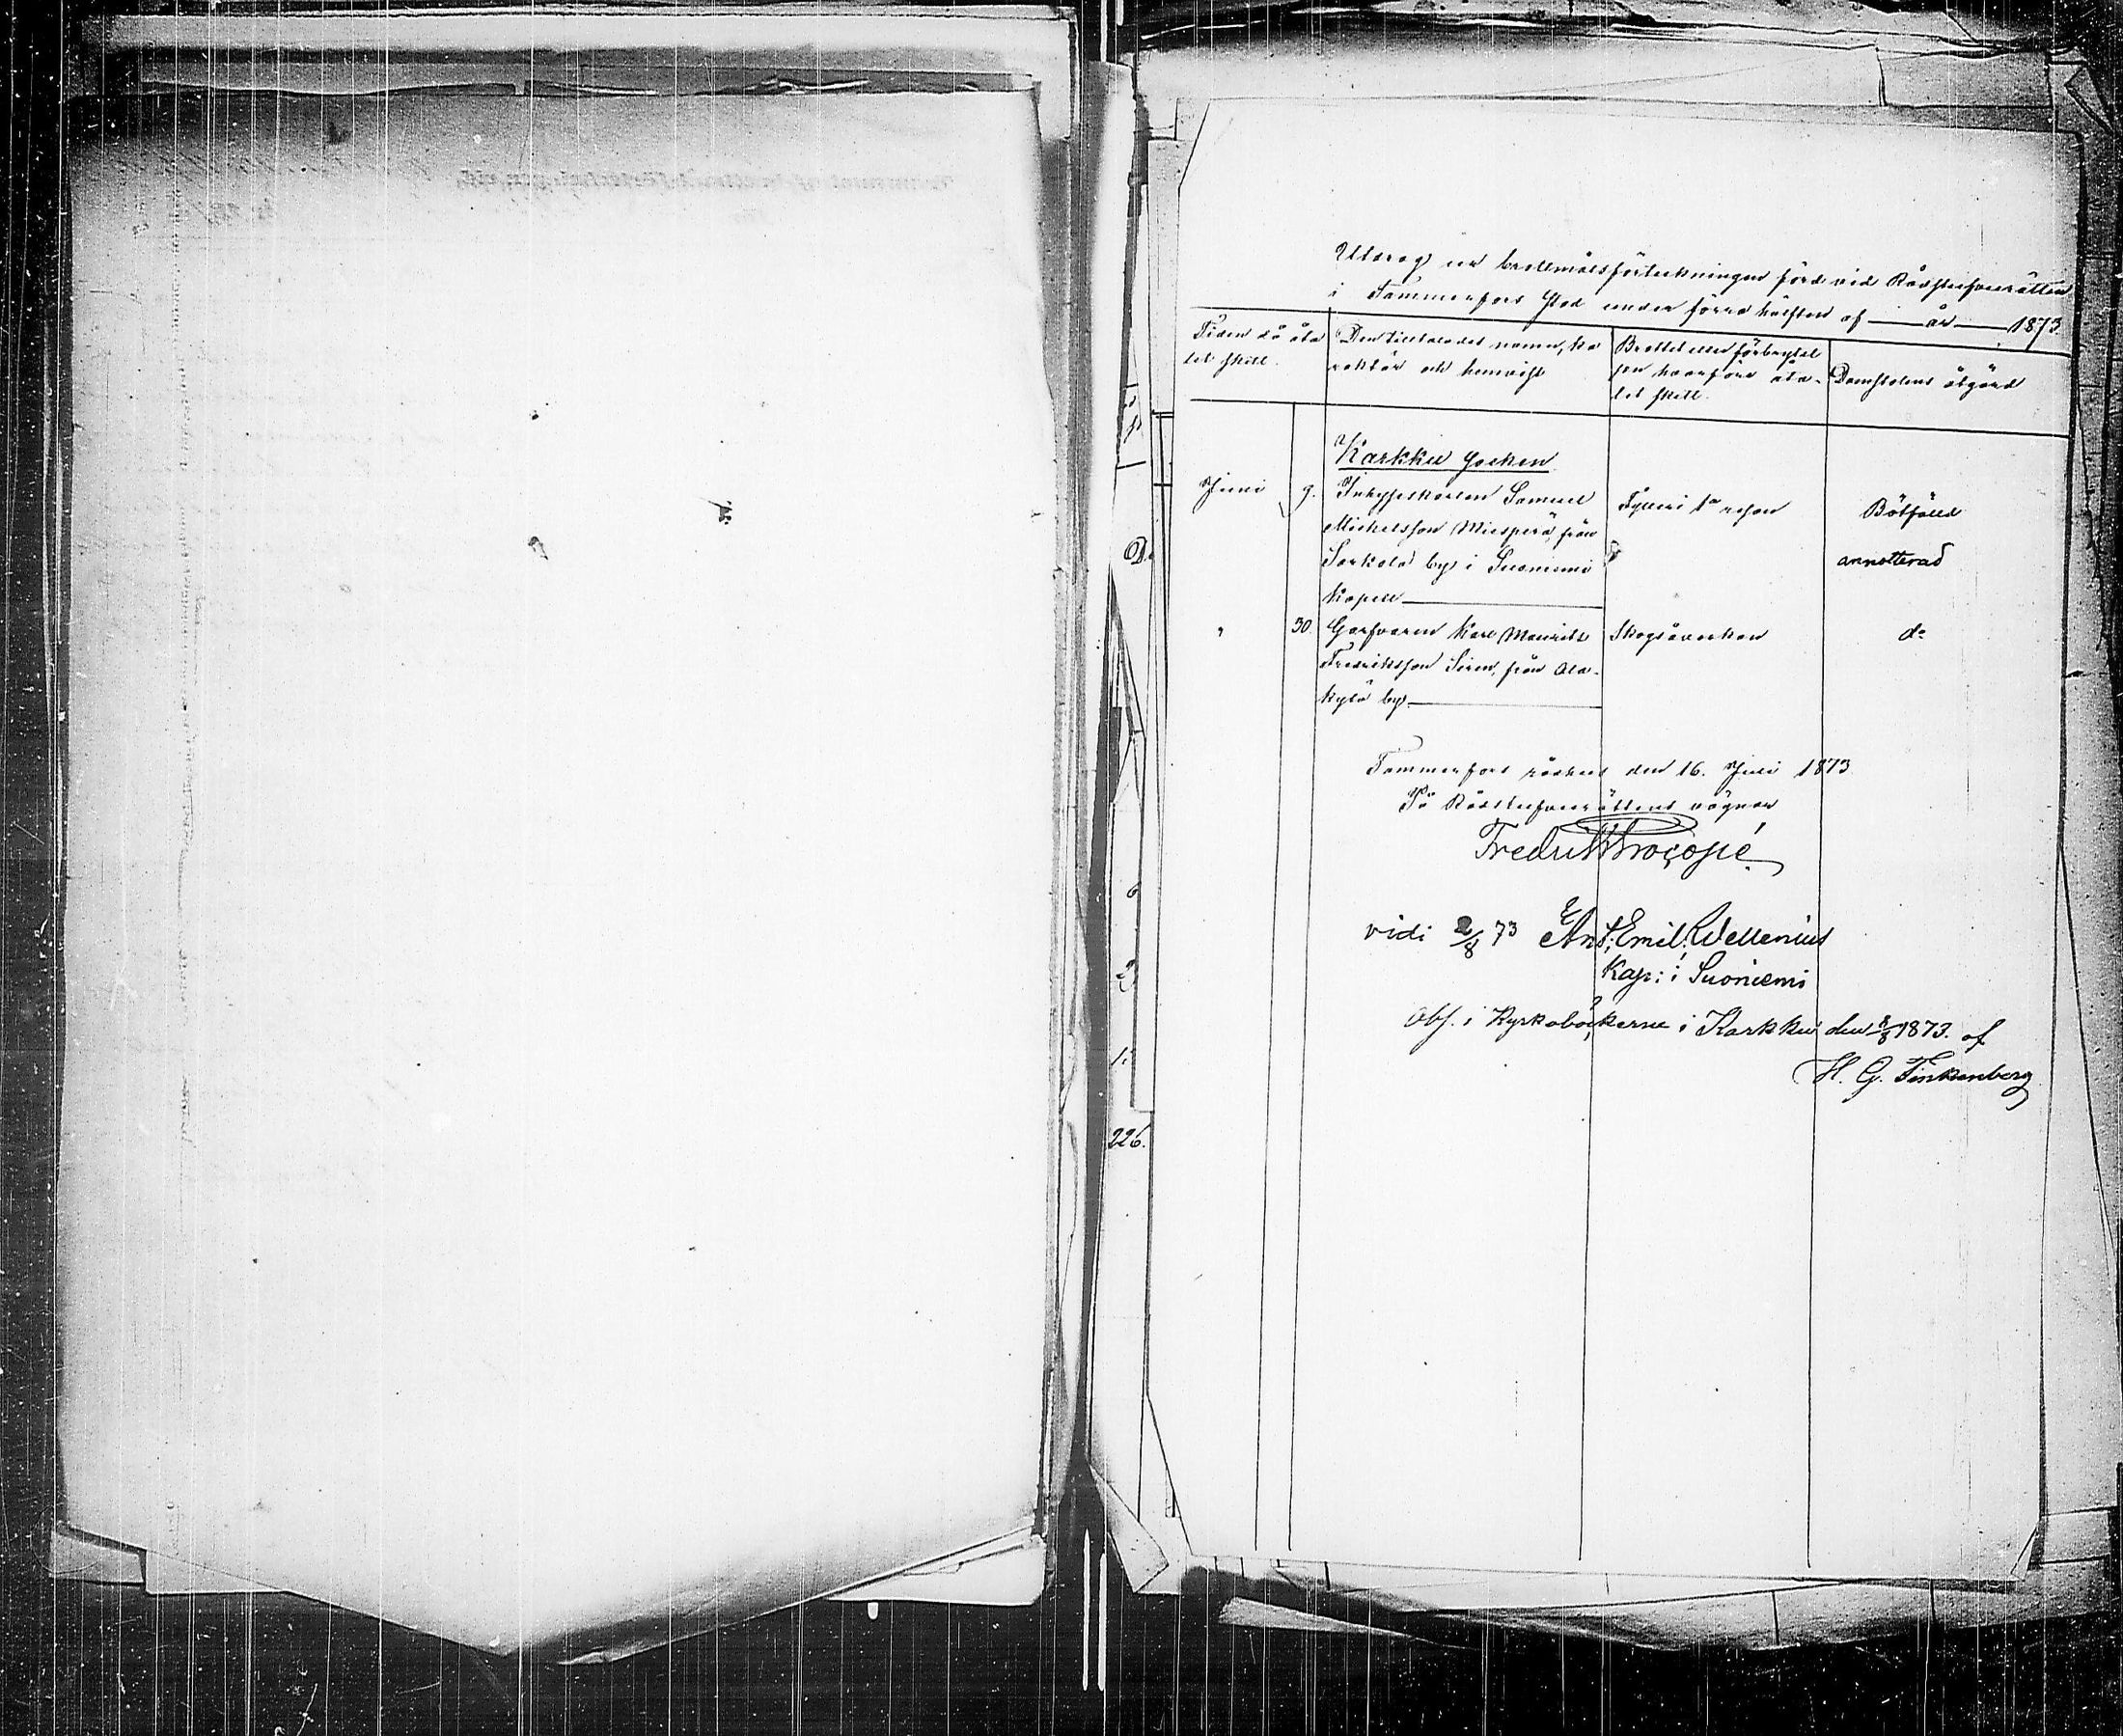 Utdrag ur brottmålsförteckningen förd vid Rådstufvurätten
i Tammerfors stad under förra hälften af — år — 1873.
Tiden då åta
let skett.
Den tilltalades namn, ka
raktär och hemvist
Brottet eller förbrytel
sen hvarföre åta-
let skett.
Domstolens åtgärd
Karkku socken
Juni 9. Inhyseskarlen Samuel
Michelsson Miesperä, från
Sarkola by i Suoniemi
Kapell
Fylleri 1a resan
Bötfälld
annotterad
" 30 Garfvaren Karl Maurits
Fredriksson Siren, från Ala-
kylä by
Skogsåverkan
do
Tammerfors rådhus den 16. Juli 1873
På Rådstufvurättens vägnar
Fredr. Procopé
vidi 2/8 73 Ant. Emil Wellenius
Kap: i Suoniemi
Obs. i Kyrkoböckerne i Karkku den 1873. af
H. G. Finkenberg
226.